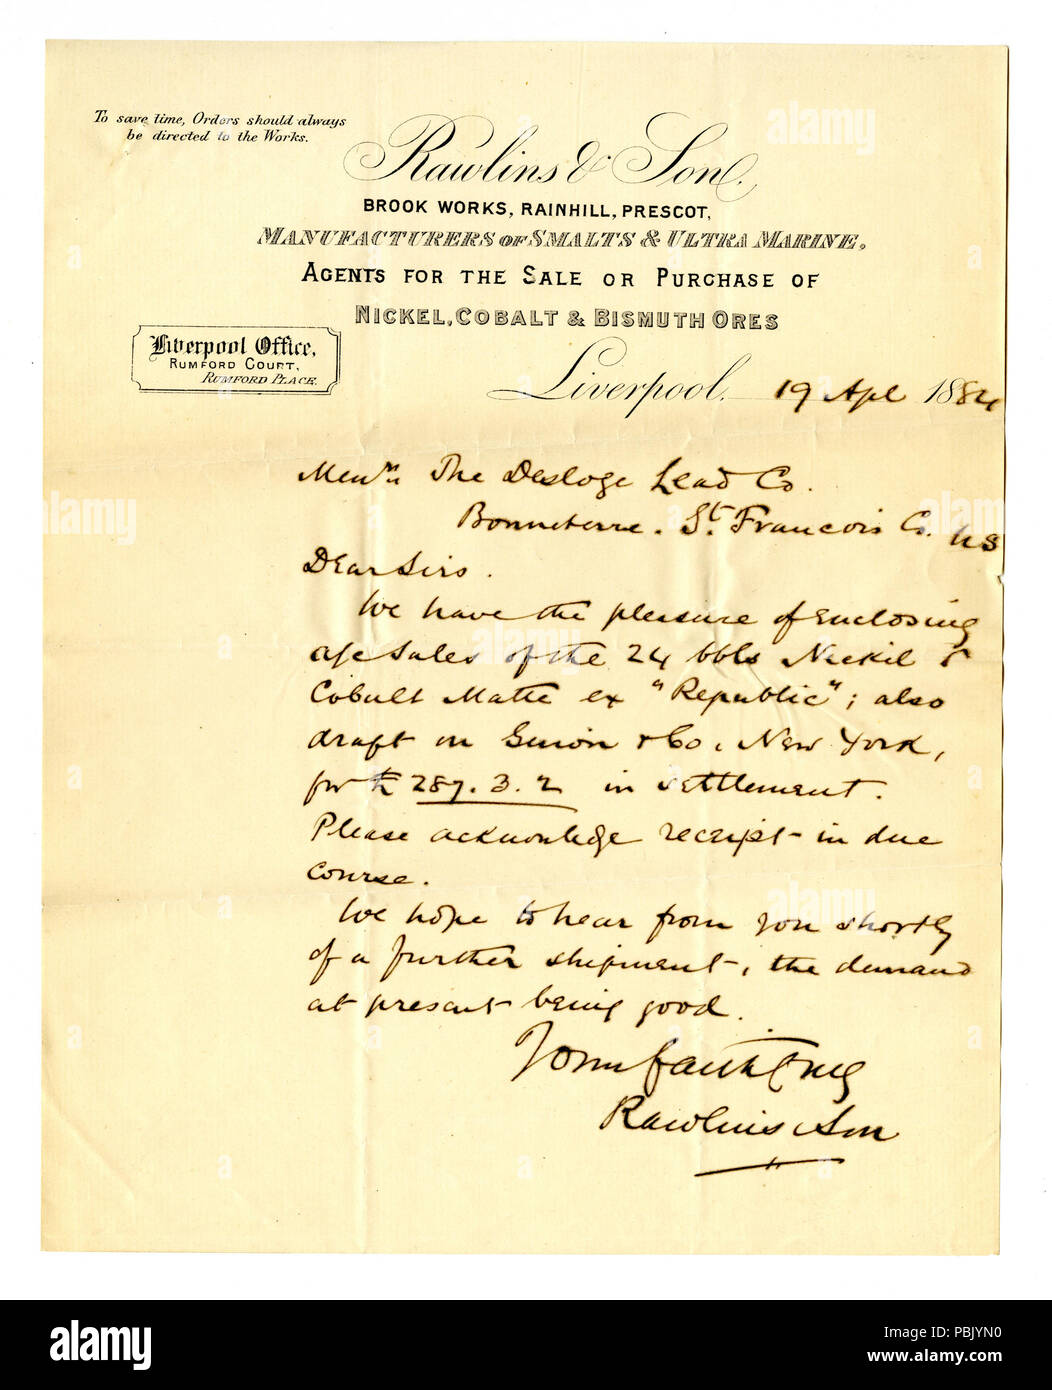 To save time, Orders should always
be directed to the Works.
Rawlins & Son.
BROOK WORKS, RAINHILL, PRESCOT,
MANUFACTURERS OF SMALTS & ULTRA MARINE,
AGENTS FOR THE SALE OR PURCHASE OF
NICKEL, COBALT & BISMUTH ORES
Liverpool Office,
RUMFORD COURT,
RUMFORD PLACE.
Liverpool, 19 Apl 1884
The Desloge Lead Co.
Bonneterre. St. Francois Co. US
Dear Sirs.
We have the pleasure of enclosing
a/c Sales of the 24 bbls Nickel &
Cobalt Matte ex "Republic"; also
draft on Guion & Co, New York,
for £ 287. 3. 2 in settlement.
Please acknowledge receipt in due
course.
We hope to hear from you shortly
of a further shipment, the demand
at present being good.
Yours faithfully
Rawlins & Son
alamy
alamy
alamy
alamy
alamy
alamy
a
a
a
a
a
a
alamy
Image ID: PBJYN0
www.alamy.com